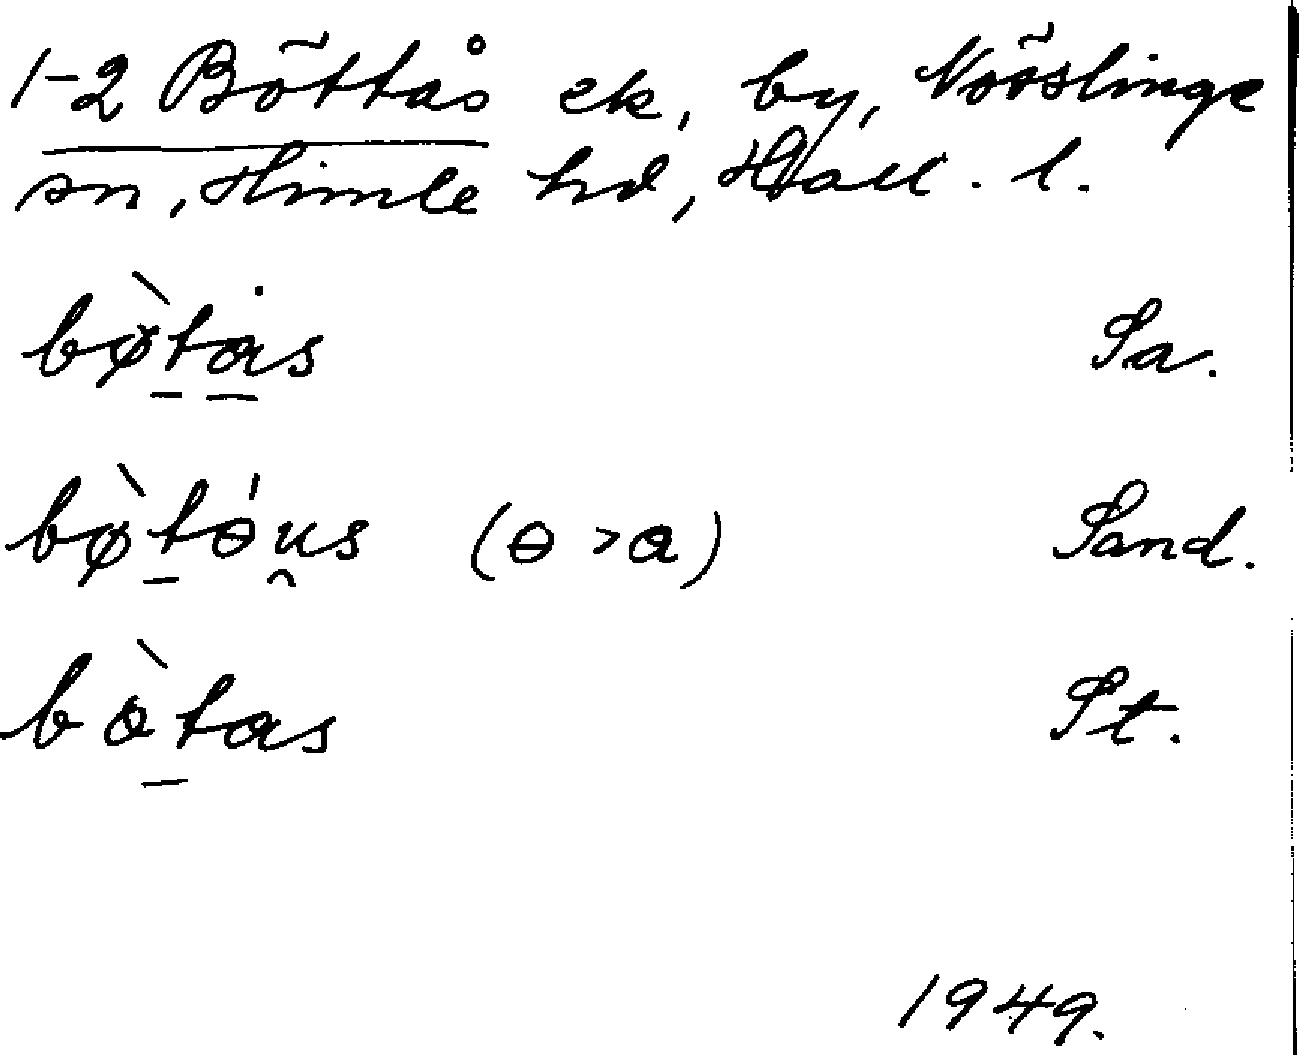 1-2 Böttås ek, by, Nösslinge
sn, Himle hd, Hall. l.
bø̀tȧs Sa.
bø̀tɵ́u̯s (ɵ > a) Sand.
bòtas St.
1949.